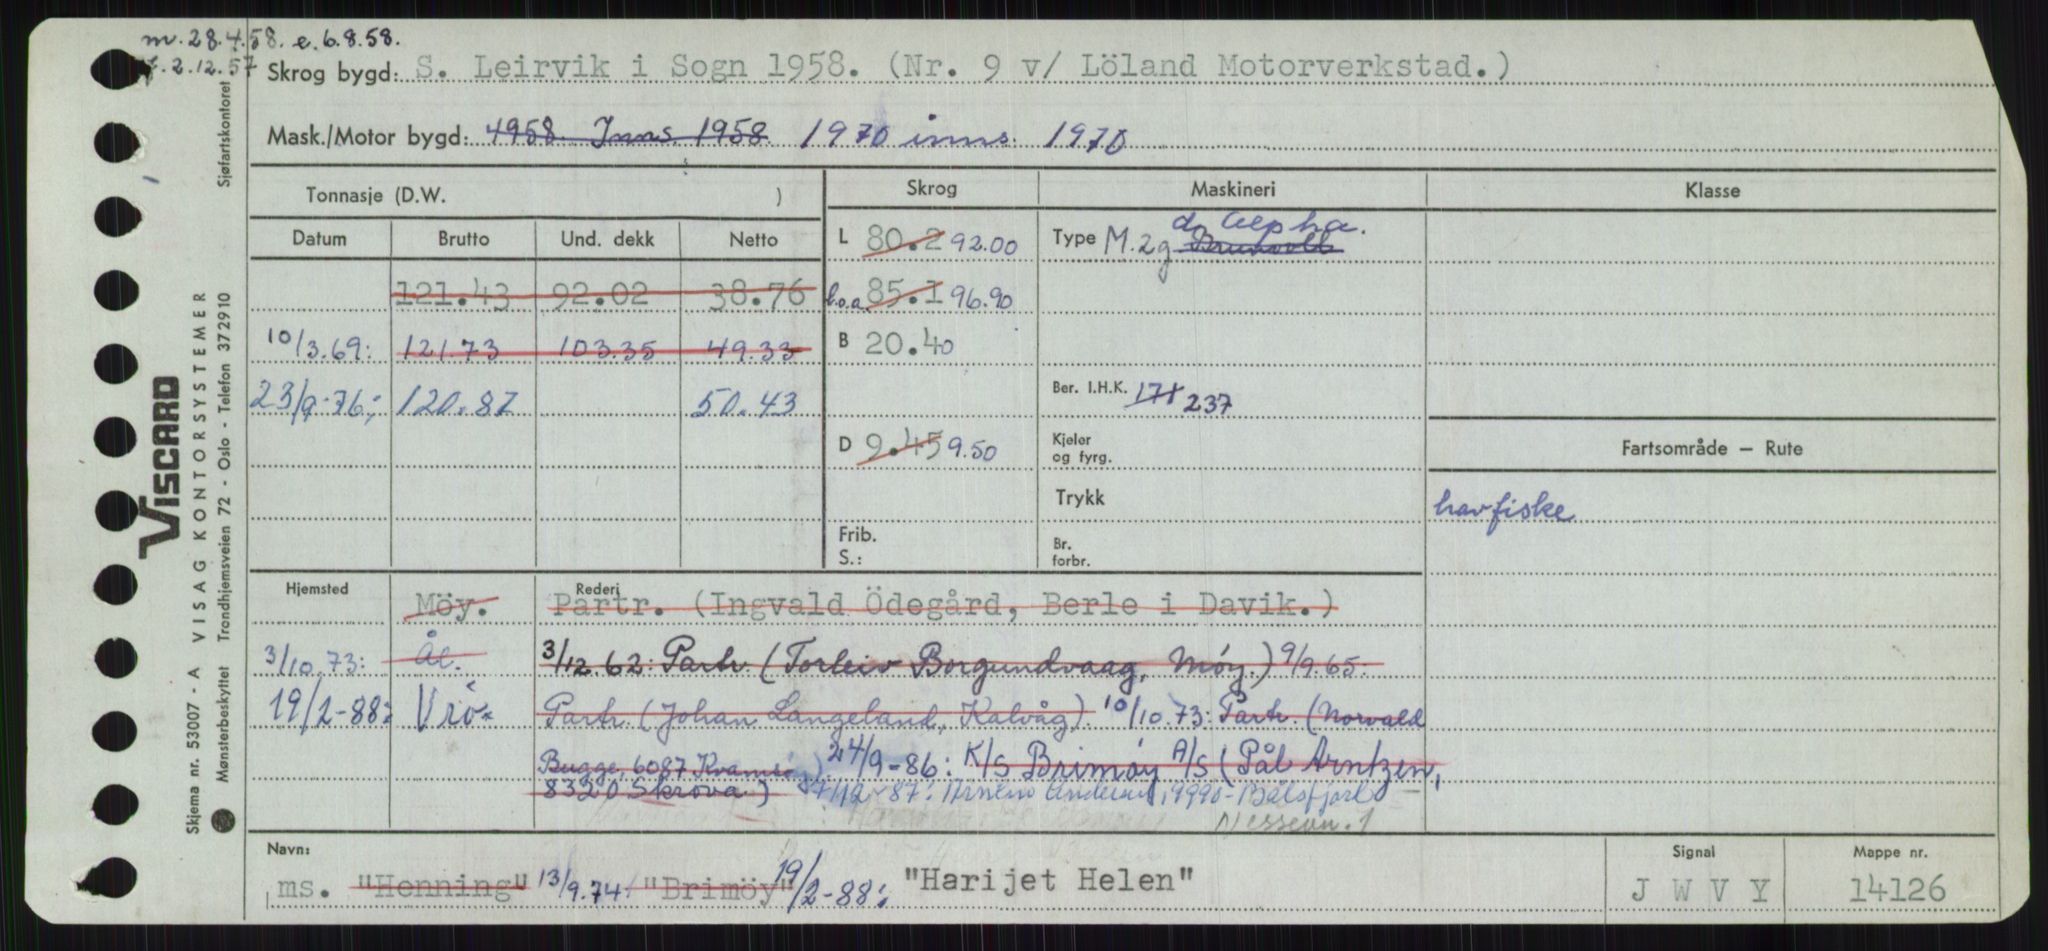 m. 28.4.58. e. 6.8.58.
2.12.57
Skrog bygd: S. Leirvik i Sogn 1958. (Nr. 9 v/ Löland Motorverkstad.)
Mask./Motor bygd: 1958. Inns. 1958. 1970 inns. 1970
Tonnasje (D.W. )
Skrog
Maskineri
Klasse
Datum Brutto Und. dekk Netto
L 80.2 92.00
Type M. 2g Brunvoll d. Alpha.
121.43 92.02 38.76
l.o.a. 85.1 96.90
10/3.69: 121.73 103.35 49.33
B 20.40
23/9-76; 120.87 50.43
Ber. I.H.K. 171 237
D 9.45 9.50
Kjeler og fyrg.
Fartsområde – Rute
Trykk
havfiske
Frib.
S.:
Br. forbr.
Hjemsted Möy.
Rederi
Partr. (Ingvald Ödegård, Berle i Davik.)
3/10.73: Ål.
3/12.62: Partr. (Torleiv Borgundvaag, Möy.) 9/9.65:
19/2-88: Vrö.
Partr. (Johan Langeland, Kalvåg) 10/10.73: Partr. (Norvald
Bugge, 6087 Kvamsøy) 24/9-86: K/S Brimöy A/S (Pål Arntzen,
8320 Skrova.) 12-87: 9990-Båtsfjord
Navn:
ms. "Henning" 13/9.74: "Brimöy" 19/2-88: "Harijet Helen"
Signal
J W V Y
Mappe nr.
14126
Sjøfartskontoret
VISCARD
VISAG KONTORSYSTEMER
Trondhjemsveien 72 - Oslo - Telefon 372910
Skjema nr. 53007 - A
Mønsterbeskyttet